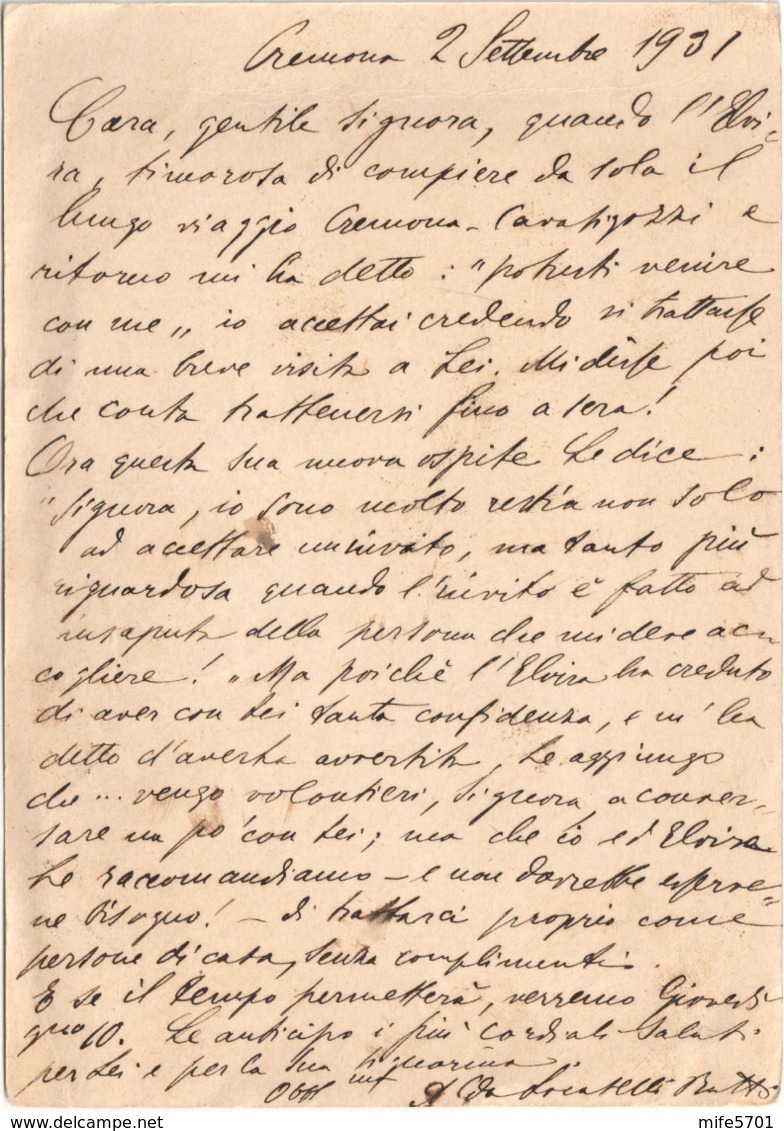 Cremona 2 Settembre 1931
Cara, gentile Signora, quando l'Elvi-
ra, timorosa di compiere da sola il
lungo viaggio Cremona-Cavatigozzi e
ritorno mi ha detto: "potresti venire
con me„ io accettai credendo si trattasse
di una breve visita a Lei. Mi disse poi
che conta trattenersi fino a sera!
Ora questa sua nuova ospite Le dice:
"Signora, io sono molto restia non solo
ad accettare un invito, ma tanto più
riguardosa quando l'invito è fatto ad
insaputa della persona che mi deve ac-
cogliere!„ Ma poichè l'Elvira ha creduto
di aver con Lei tanta confidenza, e m'ha
detto d'averla avvertita, Le aggiungo
che... vengo volontieri, Signora, a conver-
sare un po' con Lei; ma che io ed Elvira
Le raccomandiamo - e non dovrebbe esserve-
ne bisogno! - di trattarci proprio come
persone di casa, senza complimenti.
E se il tempo permetterà, verremo Giovedì
10. Le anticipo i più cordiali saluti
per Lei e per la Sua signorina.
Obbl. Locatelli
mife5701